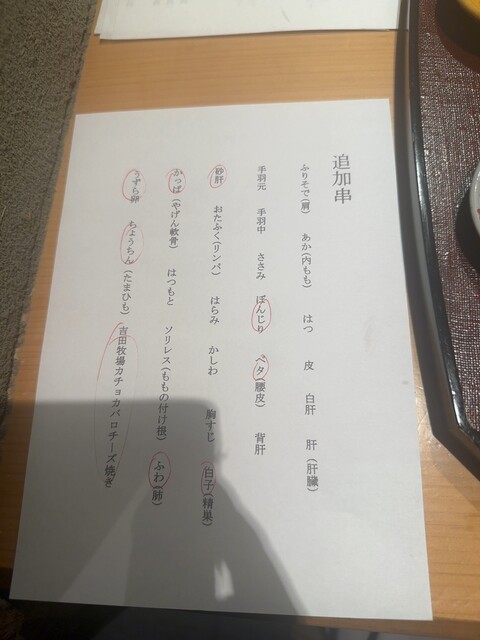 追加串
ふりそで(肩) あか(内もも) はつ 皮 白肝 肝(肝臓)
手羽元 手羽中 ささみ ぼんじり ペタ(腰皮) 背肝
砂肝 おたふく(リンパ) はらみ かしわ 胸すじ 白子(精巣)
かっぱ(やげん軟骨) はつもと ソリレス(ももの付け根) ふわ(肺)
うずら卵 ちょうちん(たまひも) 吉田牧場カチョカバロチーズ焼き